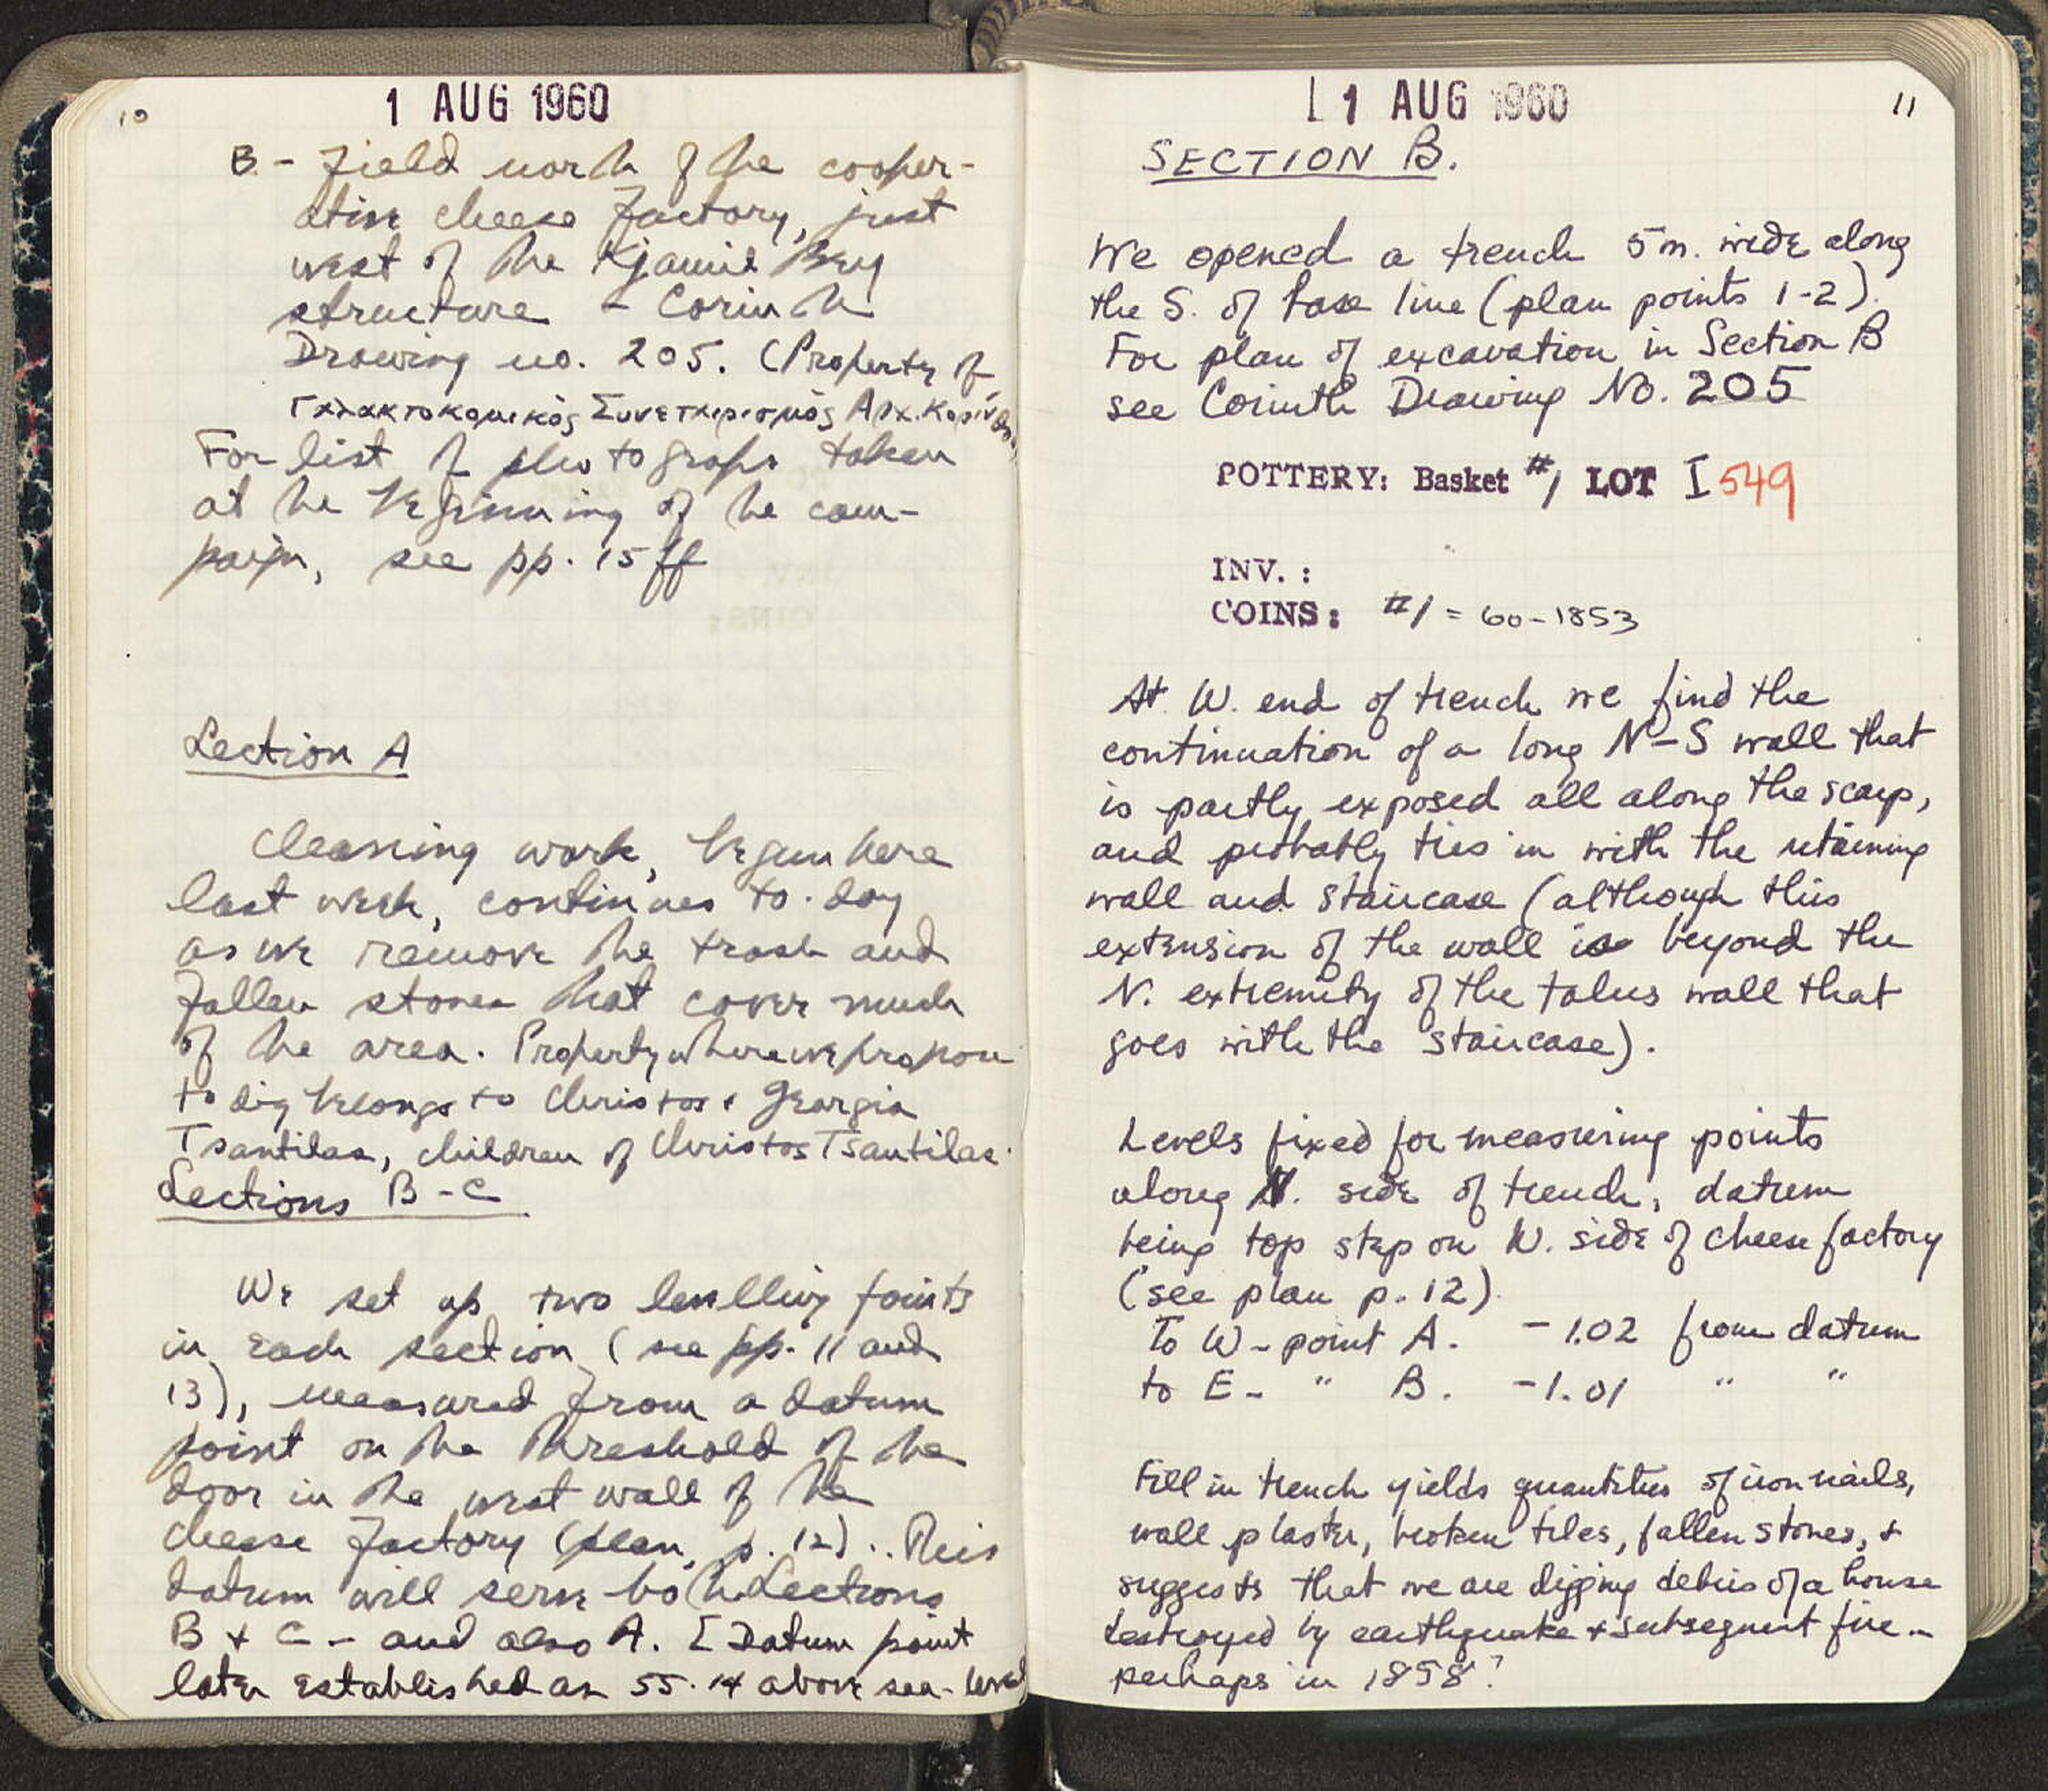 10
1 AUG 1960
B. - Field north of the cooper-
ative cheese factory, just
west of the Kjamil Bey
structure - Corinth
Drawing no. 205. (Property of
Γαλακτοκομικός Συνεταιρισμός Αρχ. Κορίνθου
For list of photographs taken
at the beginning of the cam-
paign, see pp. 15 ff
Section A
Cleaning work, begun here
last week, continues to-day
as we remove the trash and
fallen stones that cover much
of the area. Property where we propose
to dig belongs to Christos & Georgia
Tsantilas, children of Christos Tsantilas.
Sections B-C
We set up two levelling points
in each section (see pp. 11 and
13), measured from a datum
point on the threshold of the
door in the west wall of the
cheese factory (plan, p. 12). This
datum will serve both Sections
B + C - and also A. [Datum point
later established as 55.14 above sea-level
11
1 AUG 1960
SECTION B.
We opened a trench 5 m. wide along
the S. of base line (plan points 1-2).
For plan of excavation in Section B
see Corinth Drawing No. 205
POTTERY: Basket #1 LOT I 549
INV. :
COINS: #1 = 60-1853
At W. end of trench we find the
continuation of a long N-S wall that
is partly exposed all along the scarp,
and probably ties in with the retaining
wall and staircase (although this
extension of the wall is beyond the
N. extremity of the talus wall that
goes with the staircase).
Levels fixed for measuring points
along N. side of trench, datum
being top step on W. side of cheese factory
(see plan p. 12).
To W - point A. - 1.02 from datum
to E - " B. - 1.01 " "
Fill in trench yields quantities of iron nails,
wall plaster, broken tiles, fallen stones, +
suggests that we are digging debris of a house
destroyed by earthquake + subsequent fire -
perhaps in 1858?